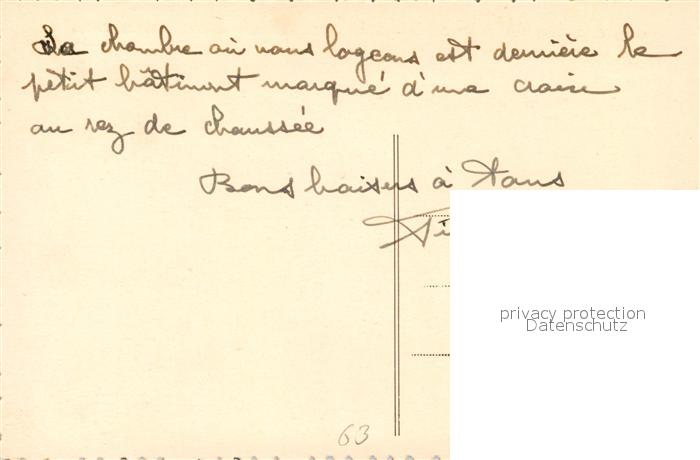 La chambre où nous logeons est derrière le
petit bâtiment marqué d'une croix
au rez de chaussée
Bons baisers à tous
privacy protection
Datenschutz
63